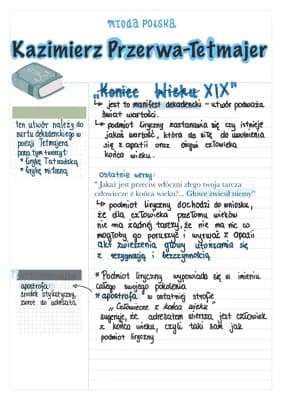 MŁODA POLSKA
Kazimierz Przerwa-Tetmajer
„Koniec Wieku XIX"
↳ jest to manifest dekadencki - utwór podważa
świat wartości.
↳ podmiot liryczny zastanawia się czy istnieje
jakaś wartość, która da siłę do uwolnienia
się z apatii oraz objęć człowieka
końca wieku.
ten utwór należy do
nurtu dekadenckiego w
poezji Tetmajera
poza tym tworzył:
* lirykę Tatrzańską
* lirykę miłosną
ostatnie wersy:
"Jakaż jest przeciw włóczni złego twoja tarcza
człowiecze z końca wieku?... Głowę zwiesił niemy"
↳ podmiot liryczny dochodzi do wniosku,
że dla człowieka przełomu wieków
nie ma żadnej tarczy, że nie ma nic co
mogłoby go poruszyć i wyrwać z apatii
akt zwieszenia głowy utożsamia się
z rezygnacją i bezczynnością.
apostrofa:
środek stylistyczny,
zwrot do adresata
* Podmiot liryczny wypowiada się w imieniu
całego swojego pokolenia
* apostrofa w ostatniej strofie
„Człowiecze z końca wieku"
sugeruje, że adresatem wiersza jest człowiek
z końca wieku, czyli taki sam jak
podmiot liryczny